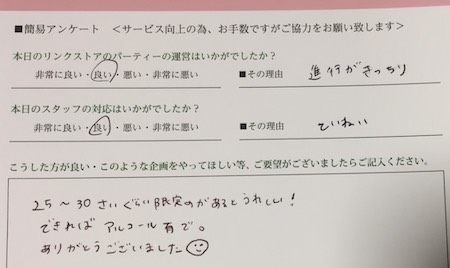 ■簡易アンケート <サービス向上の為、お手数ですがご協力をお願い致します>
本日のリンクストアのパーティーの運営はいかがでしたか?
非常に良い・良い・悪い・非常に悪い ■その理由 進行がきっちり
本日のスタッフの対応はいかがでしたか?
非常に良い・良い・悪い・非常に悪い ■その理由 ていねい
こうした方が良い・このような企画をやってほしい等、ご要望がございましたらご記入ください。
25~30さいぐらい限定のがあるとうれしい!
できればアルコール有で。
ありがとうございました